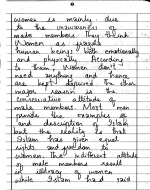 women is mainly due
to the unawareness of
male members. They think
Women as
human beings both emotionally
and physically. According
to them, Women don't
need anything and hence,
are kept deprived. The other
major reason is the
conservative attitude of
male members. Most men
provide the examples of
and description of Islam
but the reality is that
Islam has given equal
rights and freedom to
women. The different attitude
of male members result
in illiteracy of women
while Islam had said